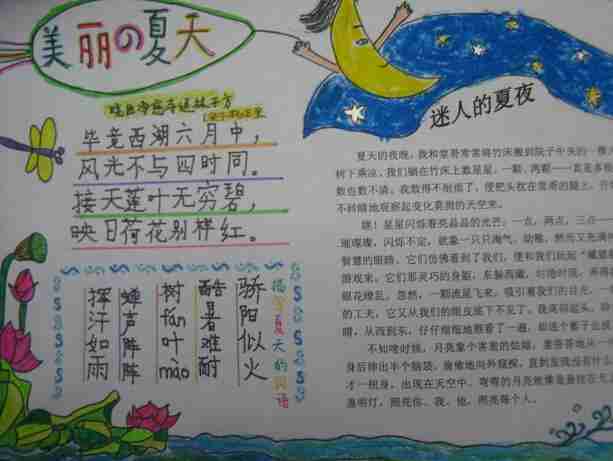 美丽の夏天
晓出净慈寺送林子方
毕竟西湖六月中，
风光不与四时同。
接天莲叶无穷碧，
映日荷花别样红。
描写夏天的词语
骄阳似火
酷暑难耐
树fán叶mào
蝉声阵阵
挥汗如雨
迷人的夏夜
夏天的夜晚，我和堂哥常常将竹床搬到院子中央的一棵大
树下乘凉。我们躺在竹床上数星星，一颗、两颗……真是多
数也数不清。我数得不耐烦了，便把头枕在堂哥的腿上，
不转睛地观察起变化莫测的天空来。
瞧！星星闪烁着亮晶晶的光芒，一点，两点，三点……
璀璨璨，闪烁不定，就象一只只淘气、幼稚、然而又充满
智慧的眼睛。它们仿佛看到了我们，便和我们玩起“藏猫
游戏来。它们那灵巧的身躯，东躲西藏，时隐时现，弄得
眼花缭乱。忽然，一颗流星飞来，吸引着我们的目光，一
的工夫，它又从我们的眼皮底下不见了。我离得起头，
睛，从西到东，仔仔细细地瞧看了一遍，
不知啥时候，月亮象个害羞的姑娘，羞答答地从一
身后伸出半个脑袋，偷偷地向外窥探，直到发现没有什么
才一扭身，出现在天空中。弯弯的月亮就像是悬挂在天上
盏明灯，照亮你、我、他，照亮每个人。